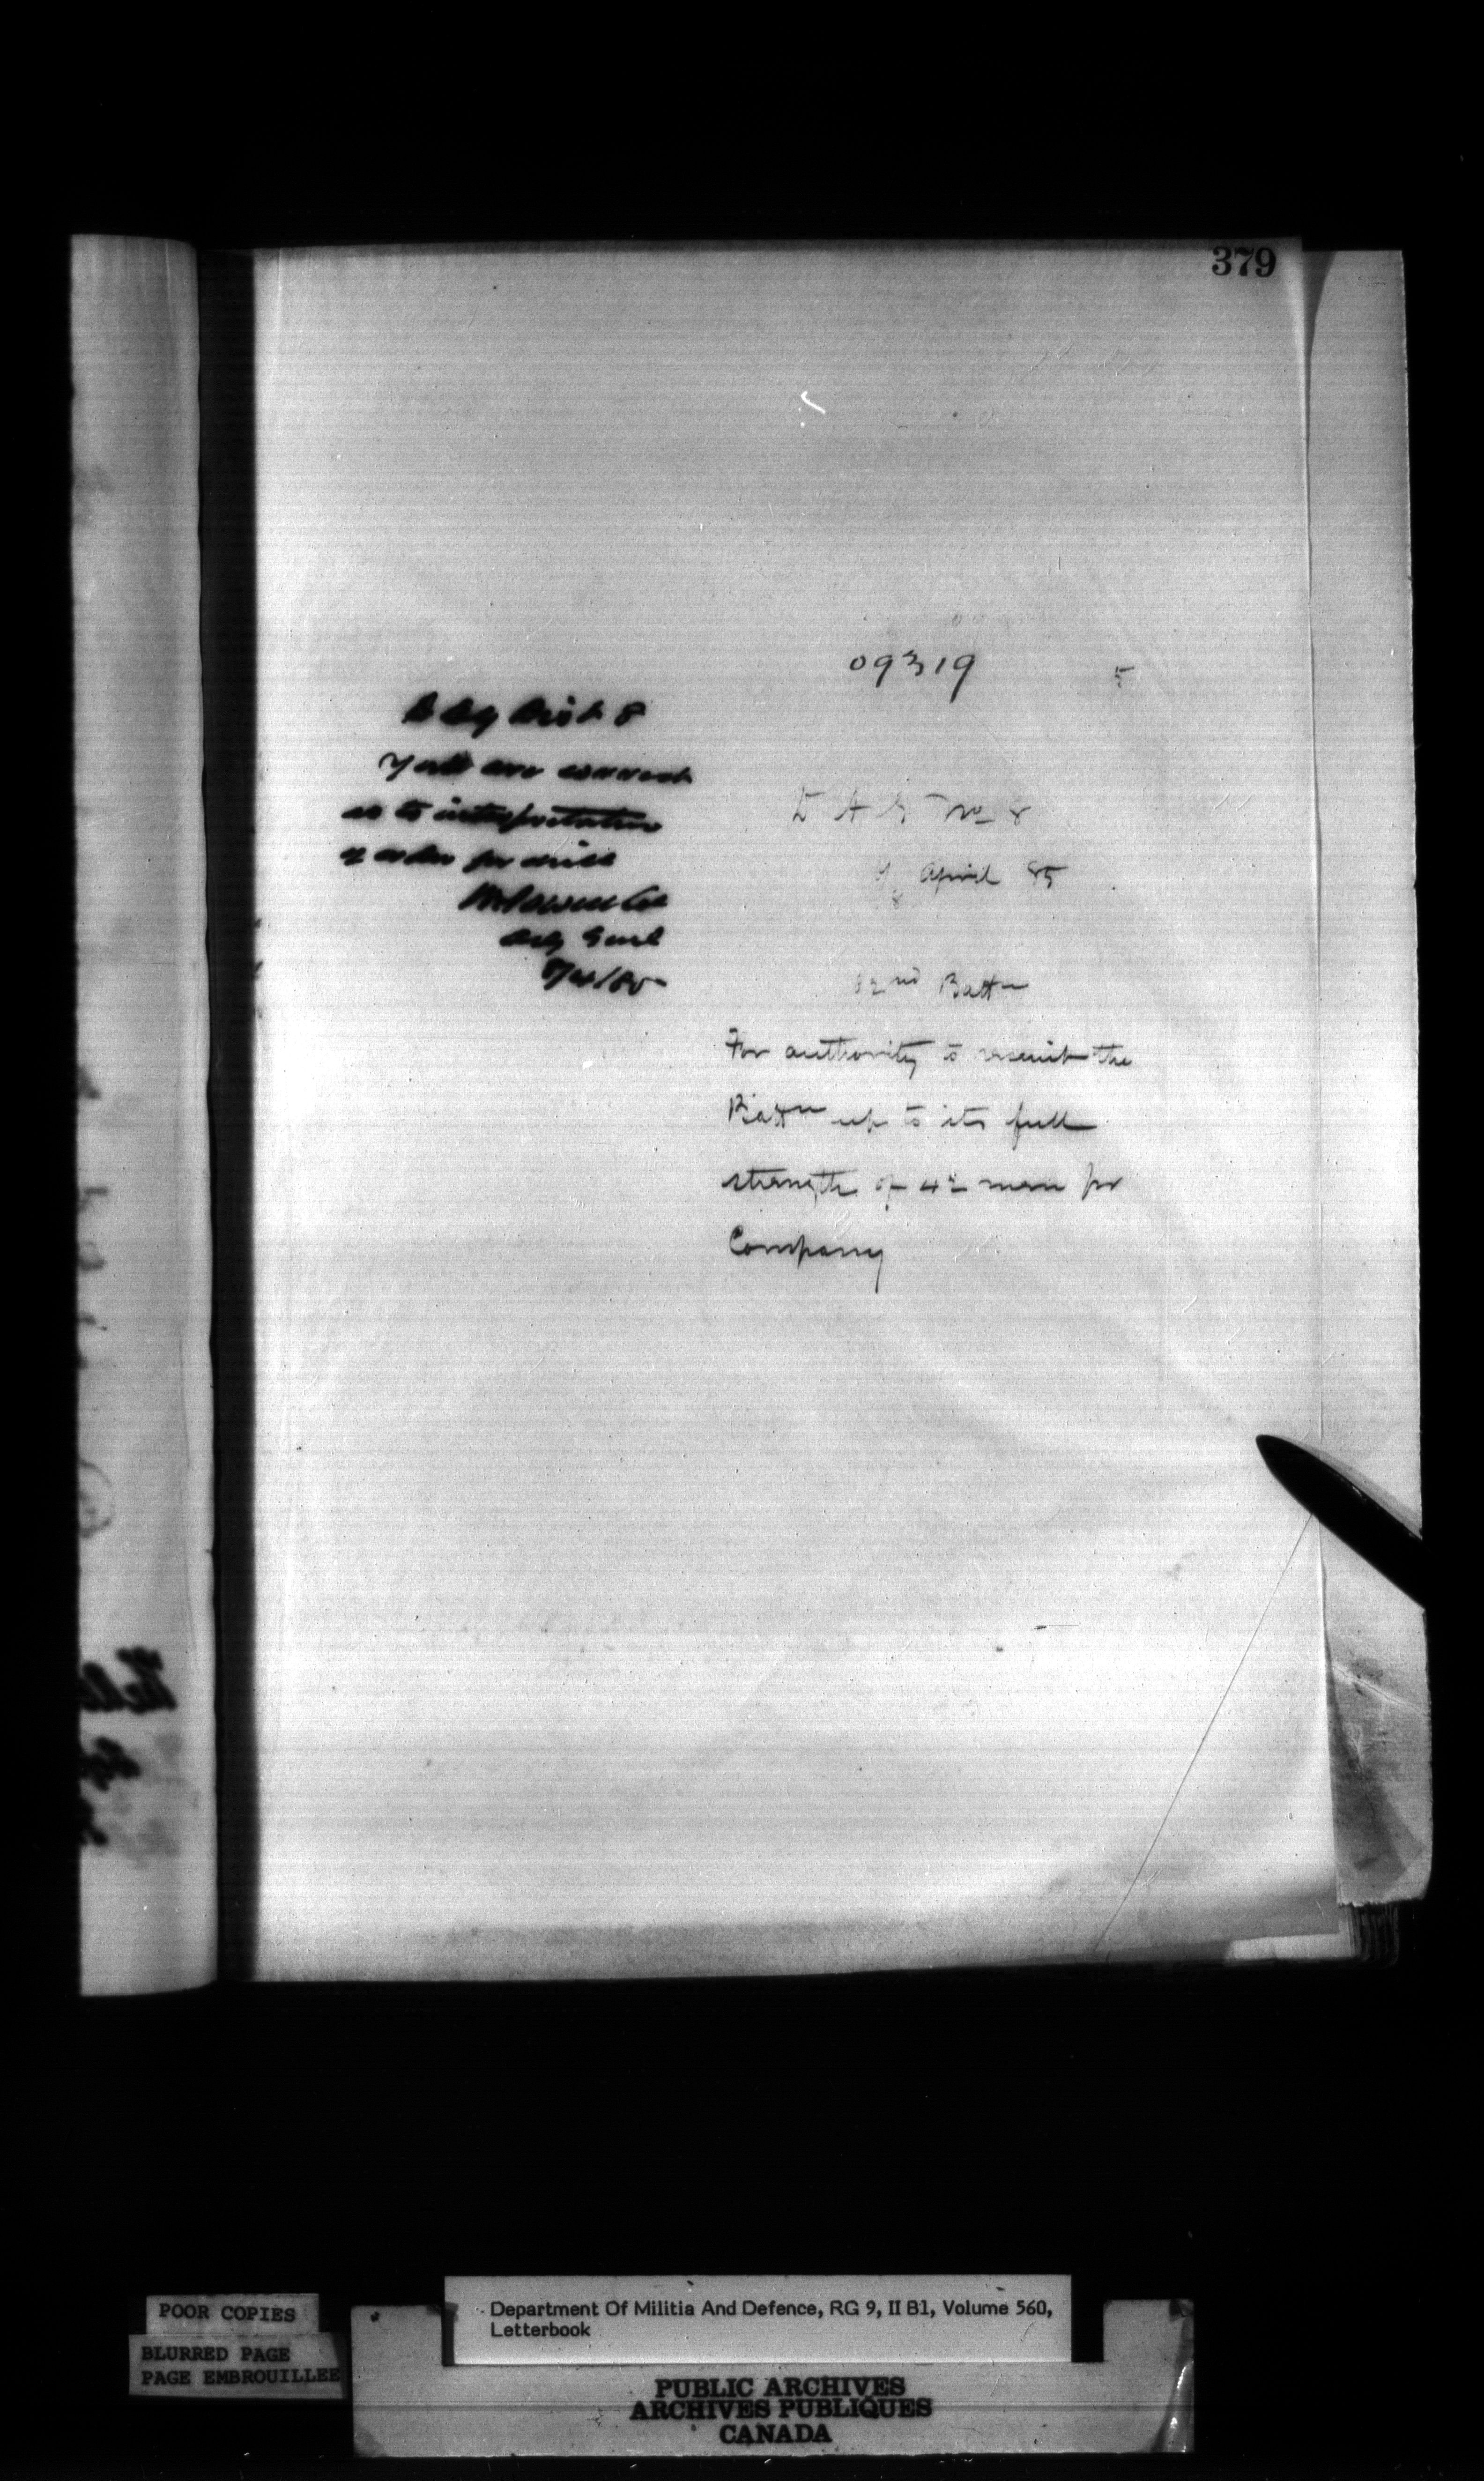 379
09319
5
D A G No 8
April 85
Dist 8
You are correct
as to interpretation
of order for drill
Powell Col
Adj Genl
/4/85
62nd Battn
For authority to recruit the
Battn up to its full
strength of 42 men pr
Company
POOR COPIES
BLURRED PAGE
PAGE EMBROUILLEE
Department Of Militia And Defence, RG 9, II B1, Volume 560,
Letterbook
PUBLIC ARCHIVES
ARCHIVES PUBLIQUES
CANADA